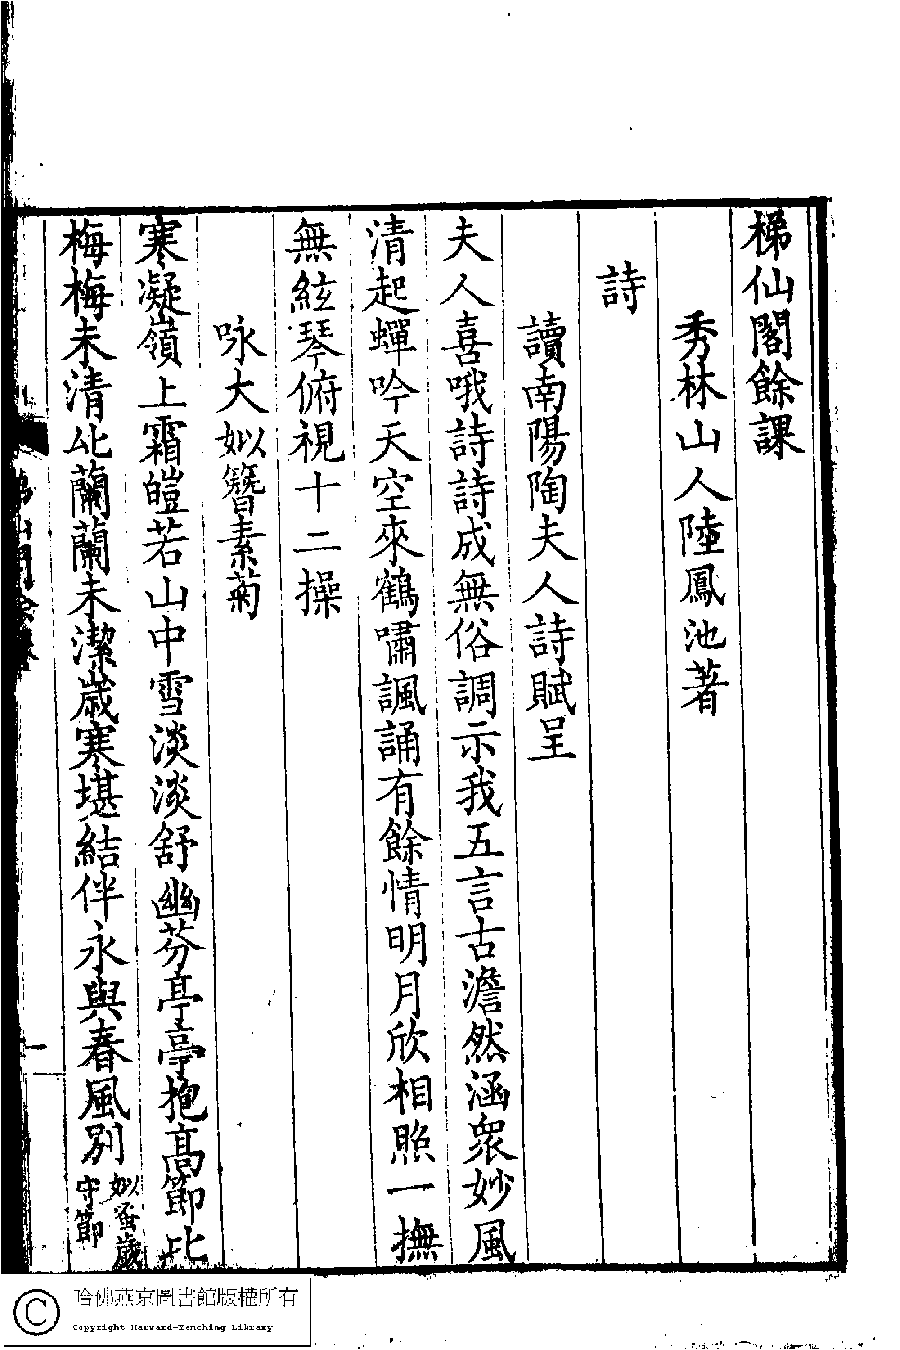 梯仙閣餘課
秀林山人陸鳳池著
詩
讀南陽陶夫人詩賦呈
夫人喜哦詩詩成無俗調示我五言古澹然涵衆妙風
清起蟬吟天空來鶴嘯諷誦有餘情明月欣相照一撫
無絃琴俯視十二操
咏大姒簪素菊
寒凝嶺上霜皚若山中雪淡淡舒幽芬亭亭抱高節比
梅梅未清比蘭蘭未潔歲寒堪結伴永與春風別
姒蚤歲
守節
一
哈佛燕京圖書館版權所有
Copyright Harvard-Yenching Library